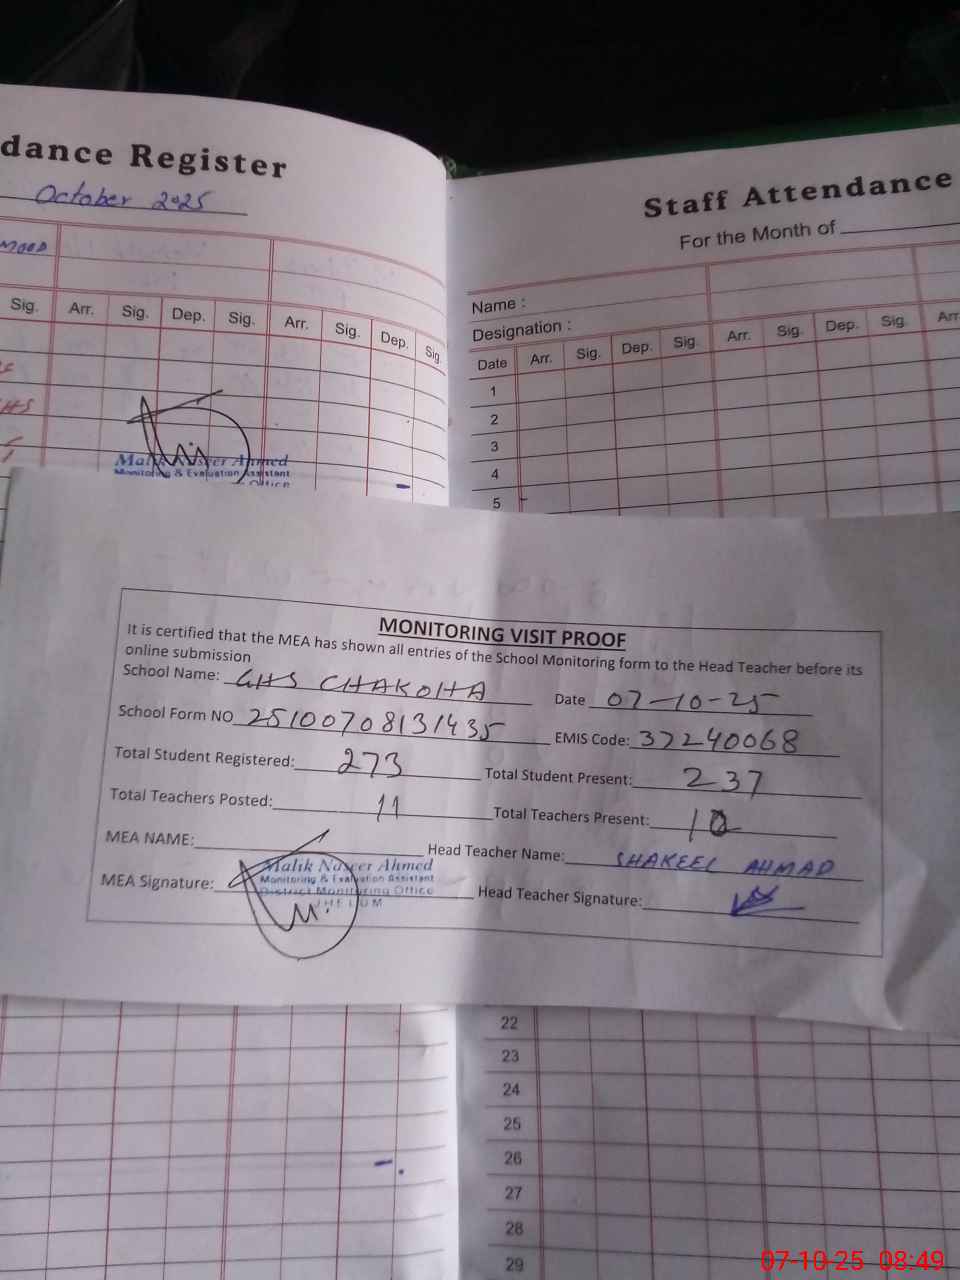 dance Register
October 2025
MOOD
Sig. Arr. Sig. Dep. Sig. Arr. Sig. Dep. Sig.
HS
Malik Naseer Ahmed
Monitoring & Evaluation Assistant
Office
Staff Attendance
For the Month of
Name :
Designation :
Date Arr. Sig. Dep. Sig. Arr. Sig. Dep. Sig. Arr
1
2
3
4
5
MONITORING VISIT PROOF
It is certified that the MEA has shown all entries of the School Monitoring form to the Head Teacher before its
online submission
School Name: GHS CHAKOHA Date 07-10-25
School Form NO 25100708131435 EMIS Code: 37240068
Total Student Registered: 273 Total Student Present: 237
Total Teachers Posted: 11 Total Teachers Present: 10
MEA NAME: Head Teacher Name: SHAKEEL AHMAD
Malik Naseer Ahmed
Monitoring & Evaluation Assistant
MEA Signature: District Monitoring Office Head Teacher Signature:
JHELUM
22
23
24
25
26
27
28
29
07-10-25 08:49